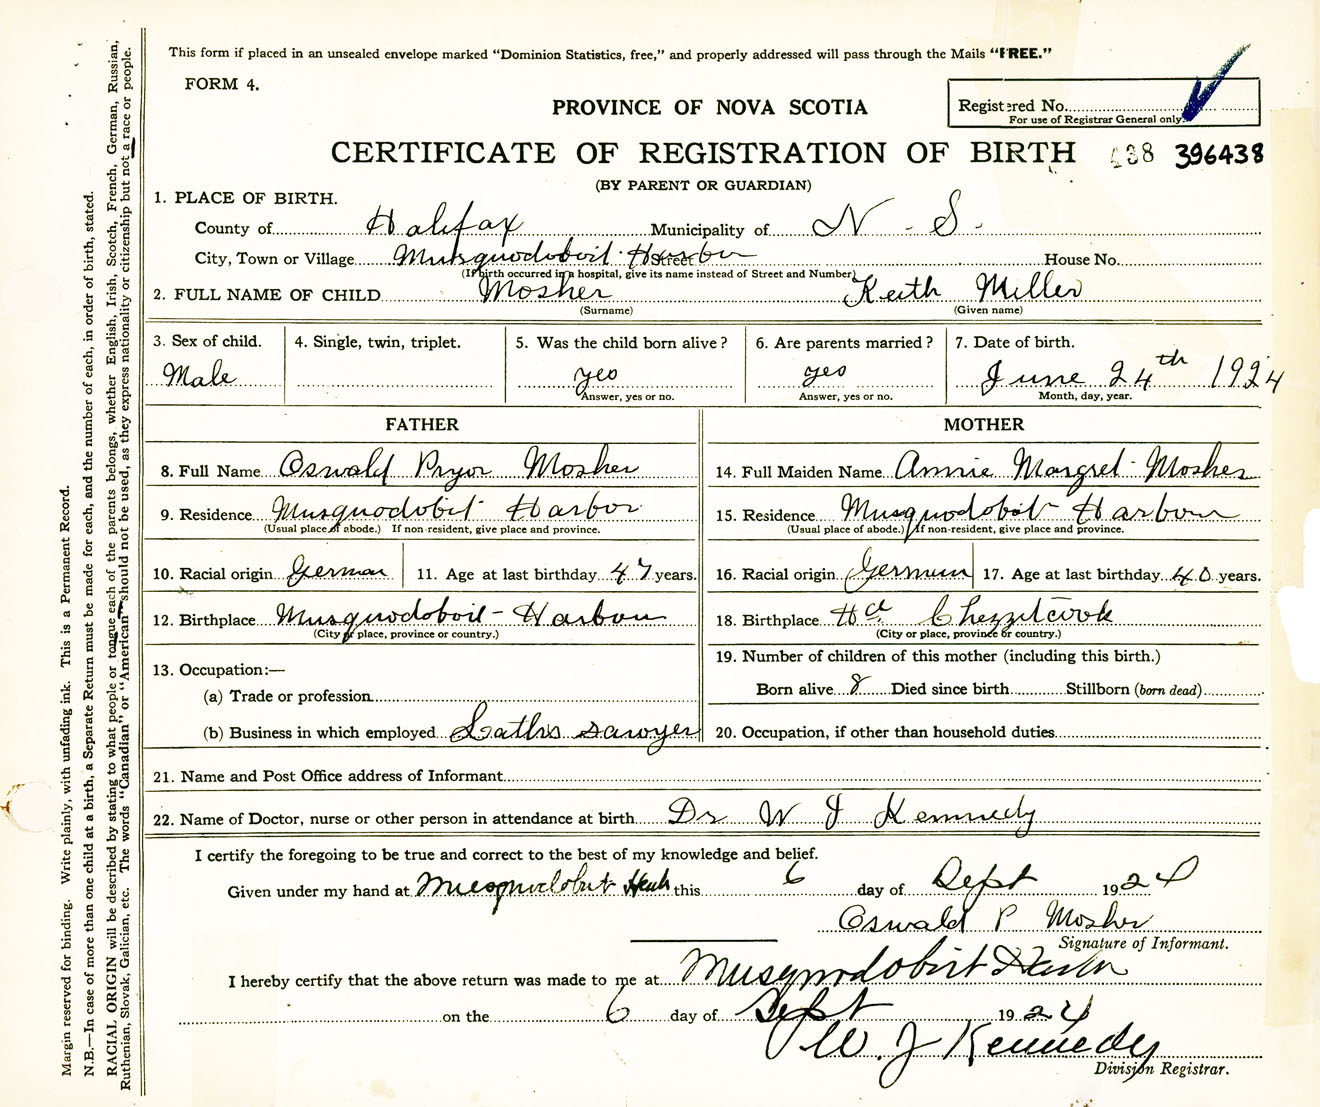 This form if placed in an unsealed envelope marked "Dominion Statistics, free," and properly addressed will pass through the Mails "FREE."
FORM 4.
Registered No.
For use of Registrar General only.
PROVINCE OF NOVA SCOTIA
CERTIFICATE OF REGISTRATION OF BIRTH 438 396438
(BY PARENT OR GUARDIAN)
1. PLACE OF BIRTH.
County of Halifax Municipality of N. S.
City, Town or Village Musquodoboit Harbor Street House No.
(If birth occurred in a hospital, give its name instead of Street and Number)
2. FULL NAME OF CHILD Mosher Keith Miller
(Surname) (Given name)
3. Sex of child. 4. Single, twin, triplet. 5. Was the child born alive? 6. Are parents married? 7. Date of birth.
Male yes yes June 24th 1924
Answer, yes or no. Answer, yes or no. Month, day, year.
FATHER MOTHER
8. Full Name Oswald Pryor Mosher 14. Full Maiden Name Annie Margret Mosher
9. Residence Musquodobit Harbor 15. Residence Musquodobit Harbour
(Usual place of abode.) If non-resident, give place and province. (Usual place of abode.) If non-resident, give place and province.
10. Racial origin German 11. Age at last birthday 47 years. 16. Racial origin German 17. Age at last birthday 40 years.
12. Birthplace Musquodoboit Harbour 18. Birthplace Hd. Chezzetcook
(City or place, province or country.) (City or place, province or country.)
13. Occupation:— 19. Number of children of this mother (including this birth.)
(a) Trade or profession Born alive 8 Died since birth Stillborn (born dead)
(b) Business in which employed Laths sawyer 20. Occupation, if other than household duties
21. Name and Post Office address of Informant
22. Name of Doctor, nurse or other person in attendance at birth Dr W J Kennedy
I certify the foregoing to be true and correct to the best of my knowledge and belief.
Given under my hand at Musquodobit this 6 day of Sept 1924
Oswald P Mosher
Signature of Informant.
I hereby certify that the above return was made to me at Musquodobit Harbor
on the 6 day of Sept 1924
W. J Kennedy
Division Registrar.
Margin reserved for binding. Write plainly, with unfading ink. This is a Permanent Record.
N.B.—In case of more than one child at a birth, a Separate Return must be made for each, and the number of each, in order of birth, stated.
RACIAL ORIGIN will be described by stating to what people or tongue each of the parents belongs, whether English, Irish, Scotch, French, German, Russian,
Ruthenian, Slovak, Galician, etc. The words "Canadian" or "American" should not be used, as they express nationality or citizenship but not a race or people.